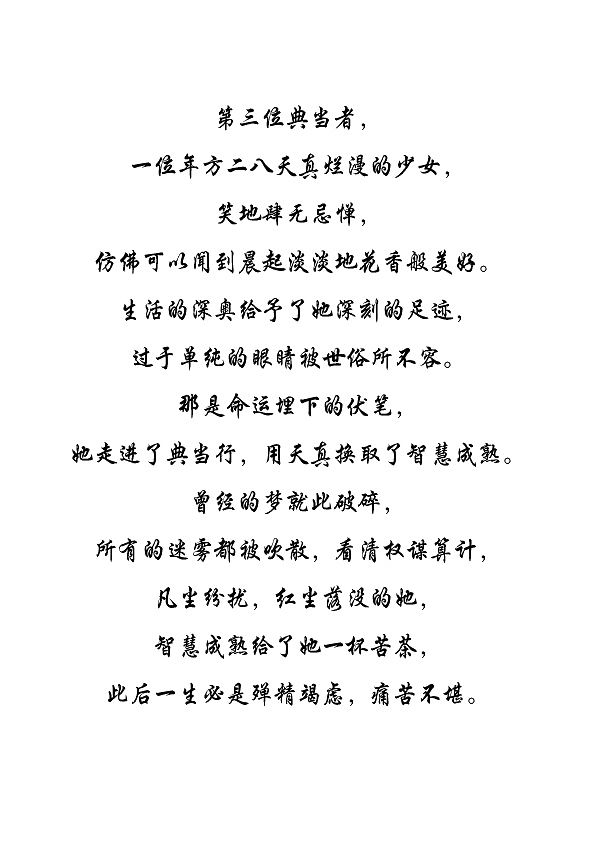 第三位典当者，
一位年方二八天真烂漫的少女，
笑地肆无忌惮，
仿佛可以闻到晨起淡淡地花香般美好。
生活的深奥给予了她深刻的足迹，
过于单纯的眼睛被世俗所不容。
那是命运埋下的伏笔，
她走进了典当行，用天真换取了智慧成熟。
曾经的梦就此破碎，
所有的迷雾都被吹散，看清权谋算计，
凡尘纷扰，红尘落没的她，
智慧成熟给了她一杯苦茶，
此后一生必是殚精竭虑，痛苦不堪。